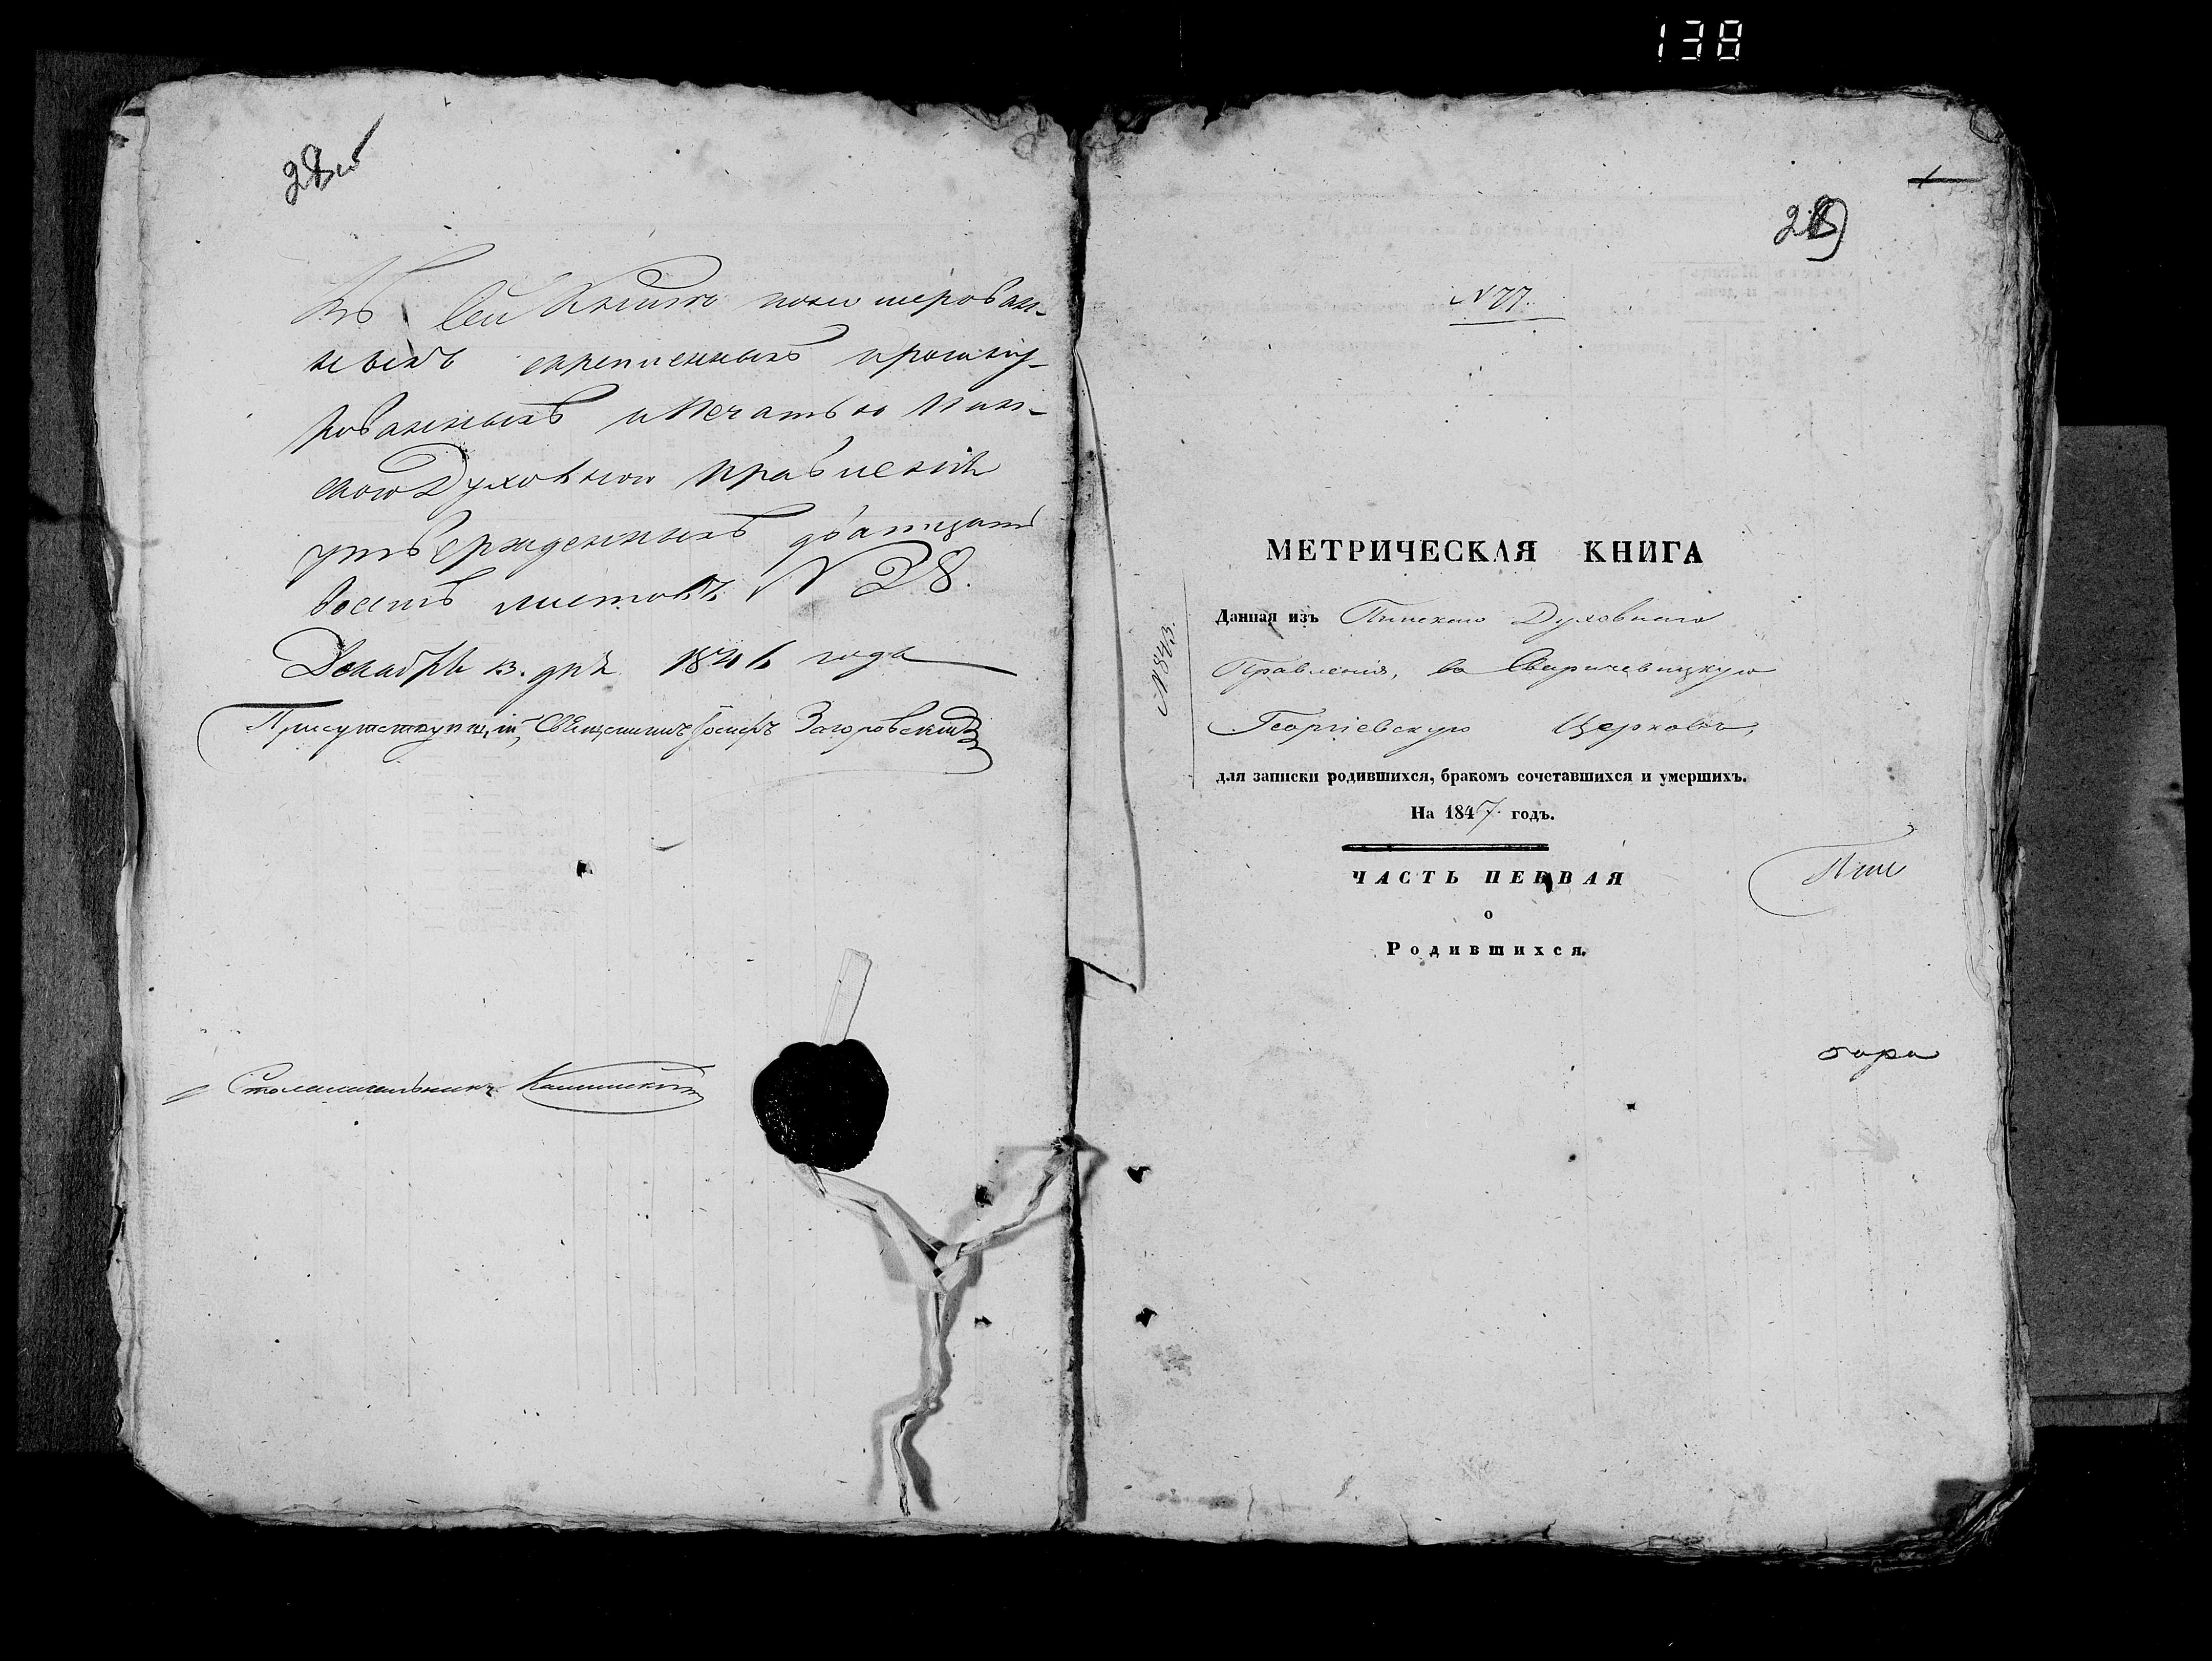 138
28об
Въ сей Книге нонумерован-
ныхъ скрепленныхъ прошну-
рованныхъ и печатью Пин-
скаго Духовнаго Правленія
утвержденныхъ дватцать
восемь листовъ. N 28.
Декабря 13. дня 1846 года
Присутствующій, Священникъ Іосифъ Загоровскій
Столоначальникъ Калинскій
1
29
N 77.
МЕТРИЧЕСКАЯ КНИГА
Данная изъ Пинскаго Духовнаго
Правленія, въ Сваричевицкую
Георгіевскую Церковь,
для записки родившихся, бракомъ сочетавшихся и умершихъ.
На 1847 годъ.
N 1843.
ЧАСТЬ ПЕРВАЯ
о
Родившихся.
Пин